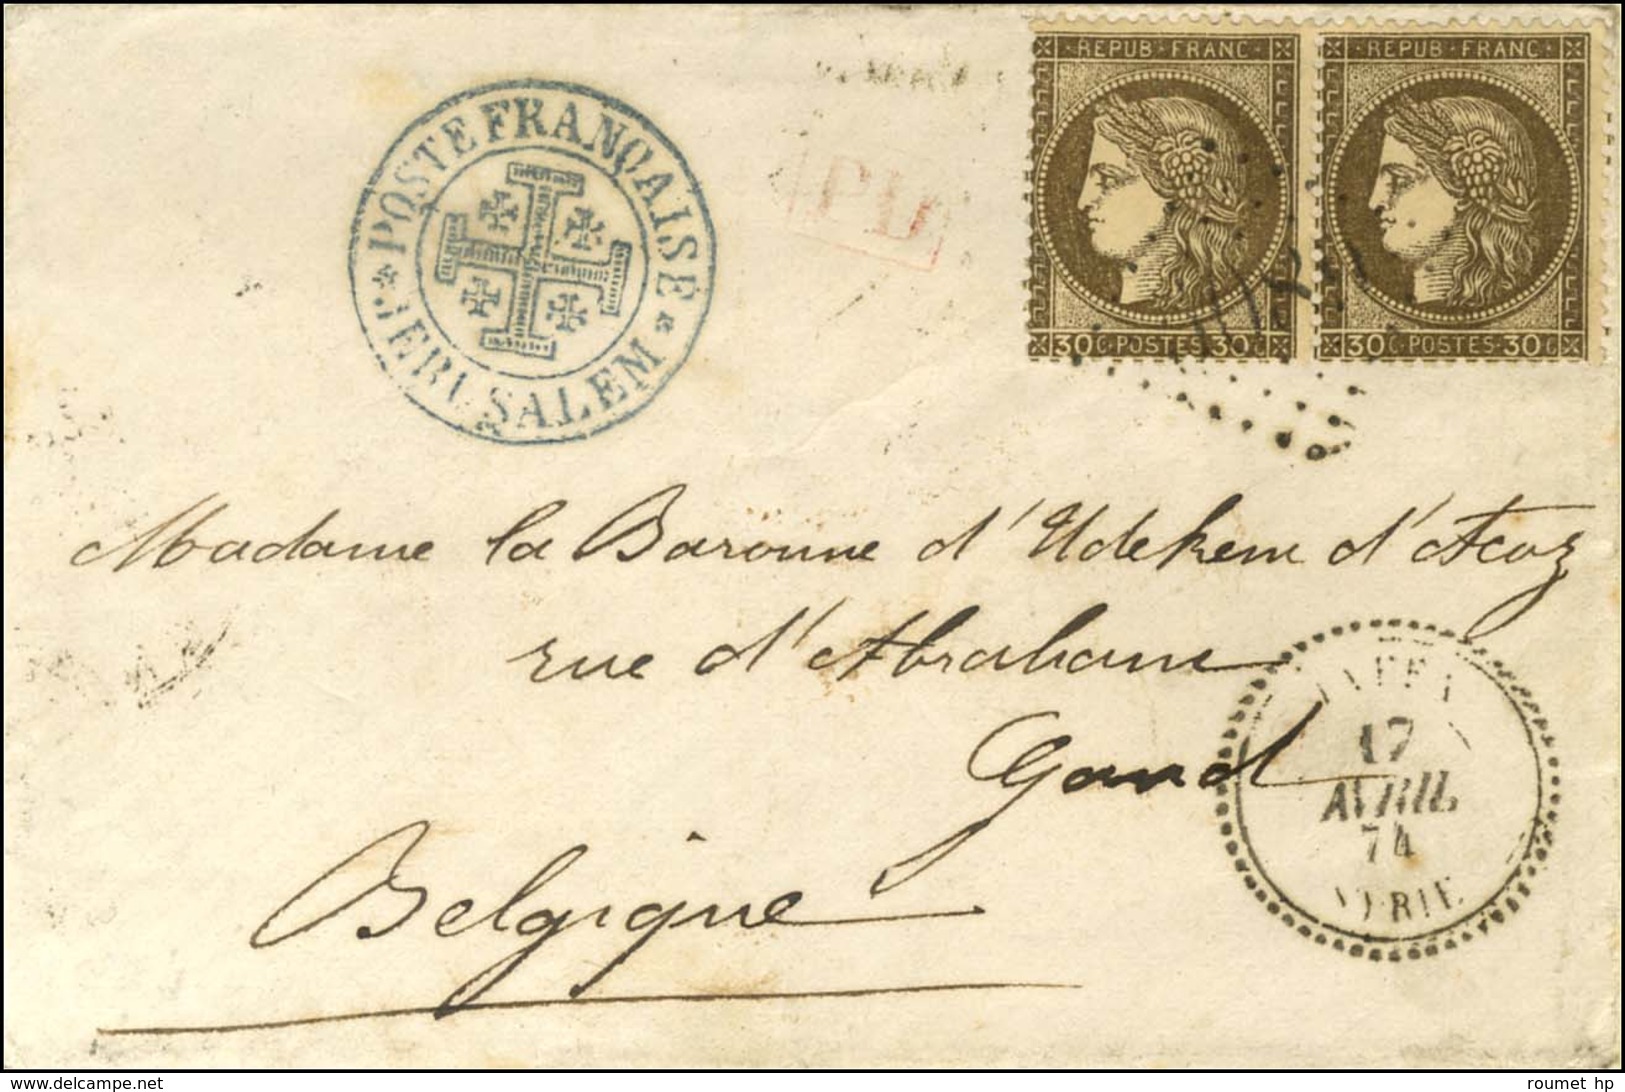 REPUB · FRANC
REPUB · FRANC
30C · POSTES · 30C
30C · POSTES · 30C
POSTE FRANÇAISE
* JERUSALEM *
PD
Madame la Baronne d'Udekem d'Acoz
rue d'Abraham
Gand
Belgique
JAFFA
17
AVRIL
74
SYRIE
delcampe.net
roumet hp